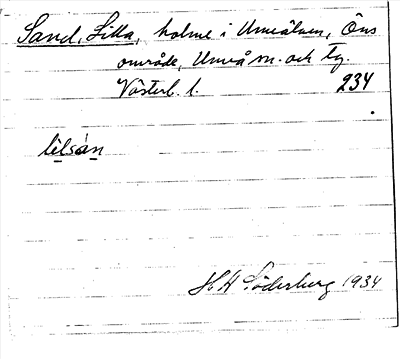 Sand, Lilla, holme i Umeälven, Öns
område, Umeå sn. och tg.
Västerb. l. 234
lilsán
H A Söderberg 1934